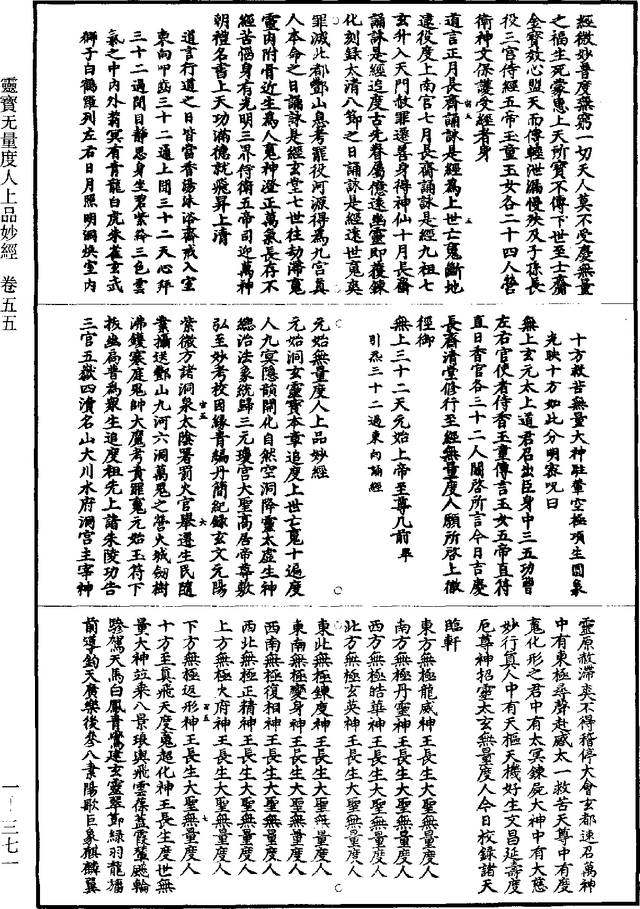 經微妙普度無窮一切天人莫不受慶無量
之福生死蒙惠上天所寶不傳下世至士齎
金寶效心盟天而傳輕泄漏慢殃及子孫長
役三官侍經五帝玉童玉女各二十四人營
衛神文保護受經者身
道言正月長齋誦詠是經為上世亡魂斷地
逮役度上南宫七月長齋誦詠是經九祖七
玄升入天門赦罪還善身得神仙十月長齋
誦詠是經追度古先眷屬億逮幽靈即獲鍊
化刻録太清八節之日誦詠是經逮世魂爽
罪滅北都酆山息考罷役河源得為九宫真
人本命之日誦詠是經玄堂七世往劫滯魂
靈肉附骨近生為人魂神澄正萬氣長存不
經苦惱身有光明三界侍衛五帝司迎萬神
朝禮名書上天功滿德就飛昇上清
道言行道之日皆當香湯沐浴齋戒入室
東向叩齒三十二通上聞三十二天心拜
三十二過閉目靜思身坐碧紫綠三色雲
氣之中内外蓊冥有青龍白虎朱雀玄武
獅子白鶴羅列左右日月照明洞煥室内
十方救苦無量大神駐輦空極項生圓象
光映十方如此分明密呪曰
無上玄元太上道君召出臣身中三五功曹
左右官使者侍香玉童傳言玉女五帝直符
直日香官各三十二人關啓所言今日吉慶
長齋清堂修行至經無量度人願所啓上徹
徑御
無上三十二天元始上帝至尊几前 畢
引炁三十二過東向誦經
元始無量度人上品妙經
元始洞玄靈寶本章追度上世亡魂十遍度
人九冥隱韻開化自然空洞降靈太虛生神
總治法象統歸三元瓊宫大聖高居帝尊敷
弘至妙考校因緣青編丹簡紀録玄文元陽
紫微方諸洞泉太陰署罰火官舉遷生民隨
業攝送酆山九河六洞萬鬼之營火城劍樹
沸鑊寒庭鬼帥大魔考責罪魂元始玉符下
拔幽扃普為眾生追度祖先上詣朱陵功告
三官五嶽四瀆名山大川水府洞宫主宰神
靈原赦滯爽不得稽停大會玄都速召萬神
中有東極尋聲赴感太一救苦天尊中有度
魂化形之君中有太冥鍊屍大神中有大慈
妙行真人中有天樞天機好生文昌延壽度
厄尊神招靈太玄無量度人今日校録諸天
臨軒
東方無極龍威神王長生大聖無量度人
南方無極丹靈神王長生大聖無量度人
西方無極皓華神王長生大聖無量度人
北方無極玄英神王長生大聖無量度人
東北無極鍊度神王長生大聖無量度人
東南無極變身神王長生大聖無量度人
西南無極復相神王長生大聖無量度人
西北無極正精神王長生大聖無量度人
上方無極火府神王長生大聖無量度人
下方無極返形神王長生大聖無量度人
十方至真飛天度魂超化神王長生度世無
量大神竝乘八景琅輿飛雲葆蓋霞輦飈輪
驂駕天馬白鳳青鸞建玄靈翠節綠羽龍旛
前導鈞天廣樂後參八素陽歌巨象麒麟翼
靈寶无量度人上品妙經 卷五五
一—三七一